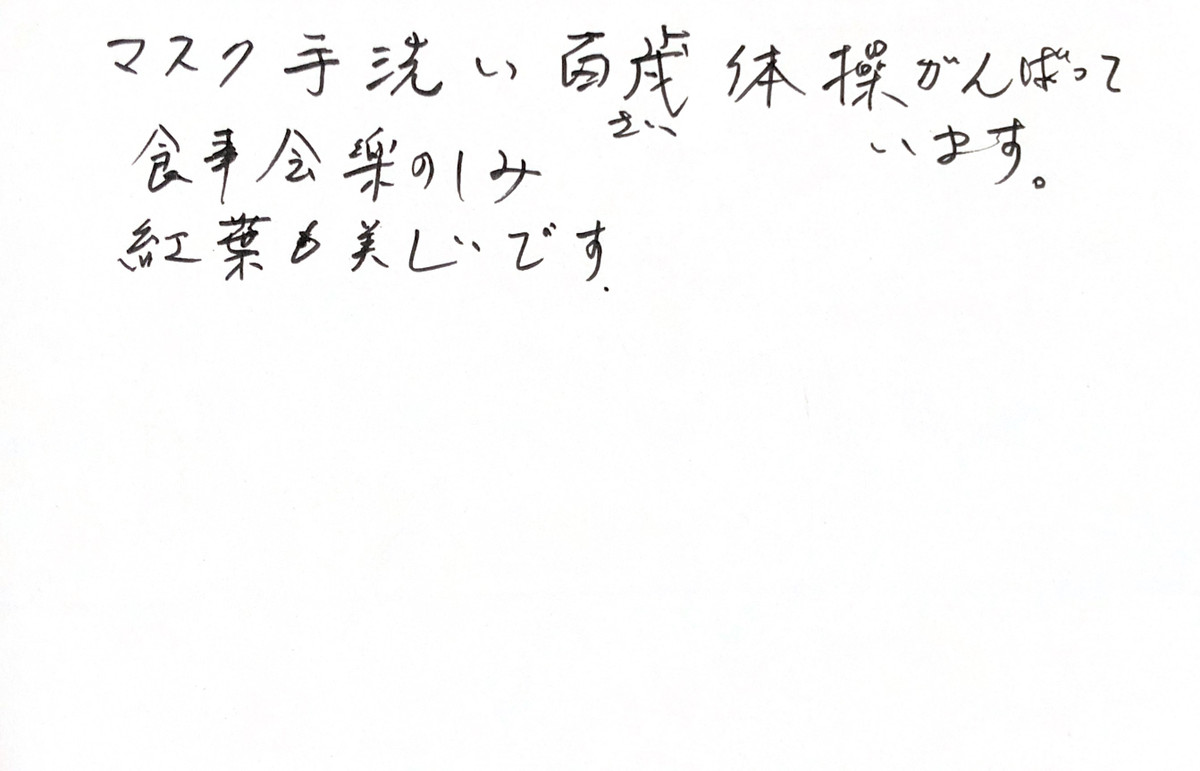 マスク手洗い百歳体操がんばって
さい
います。
食事会楽のしみ
紅葉も美しいです.